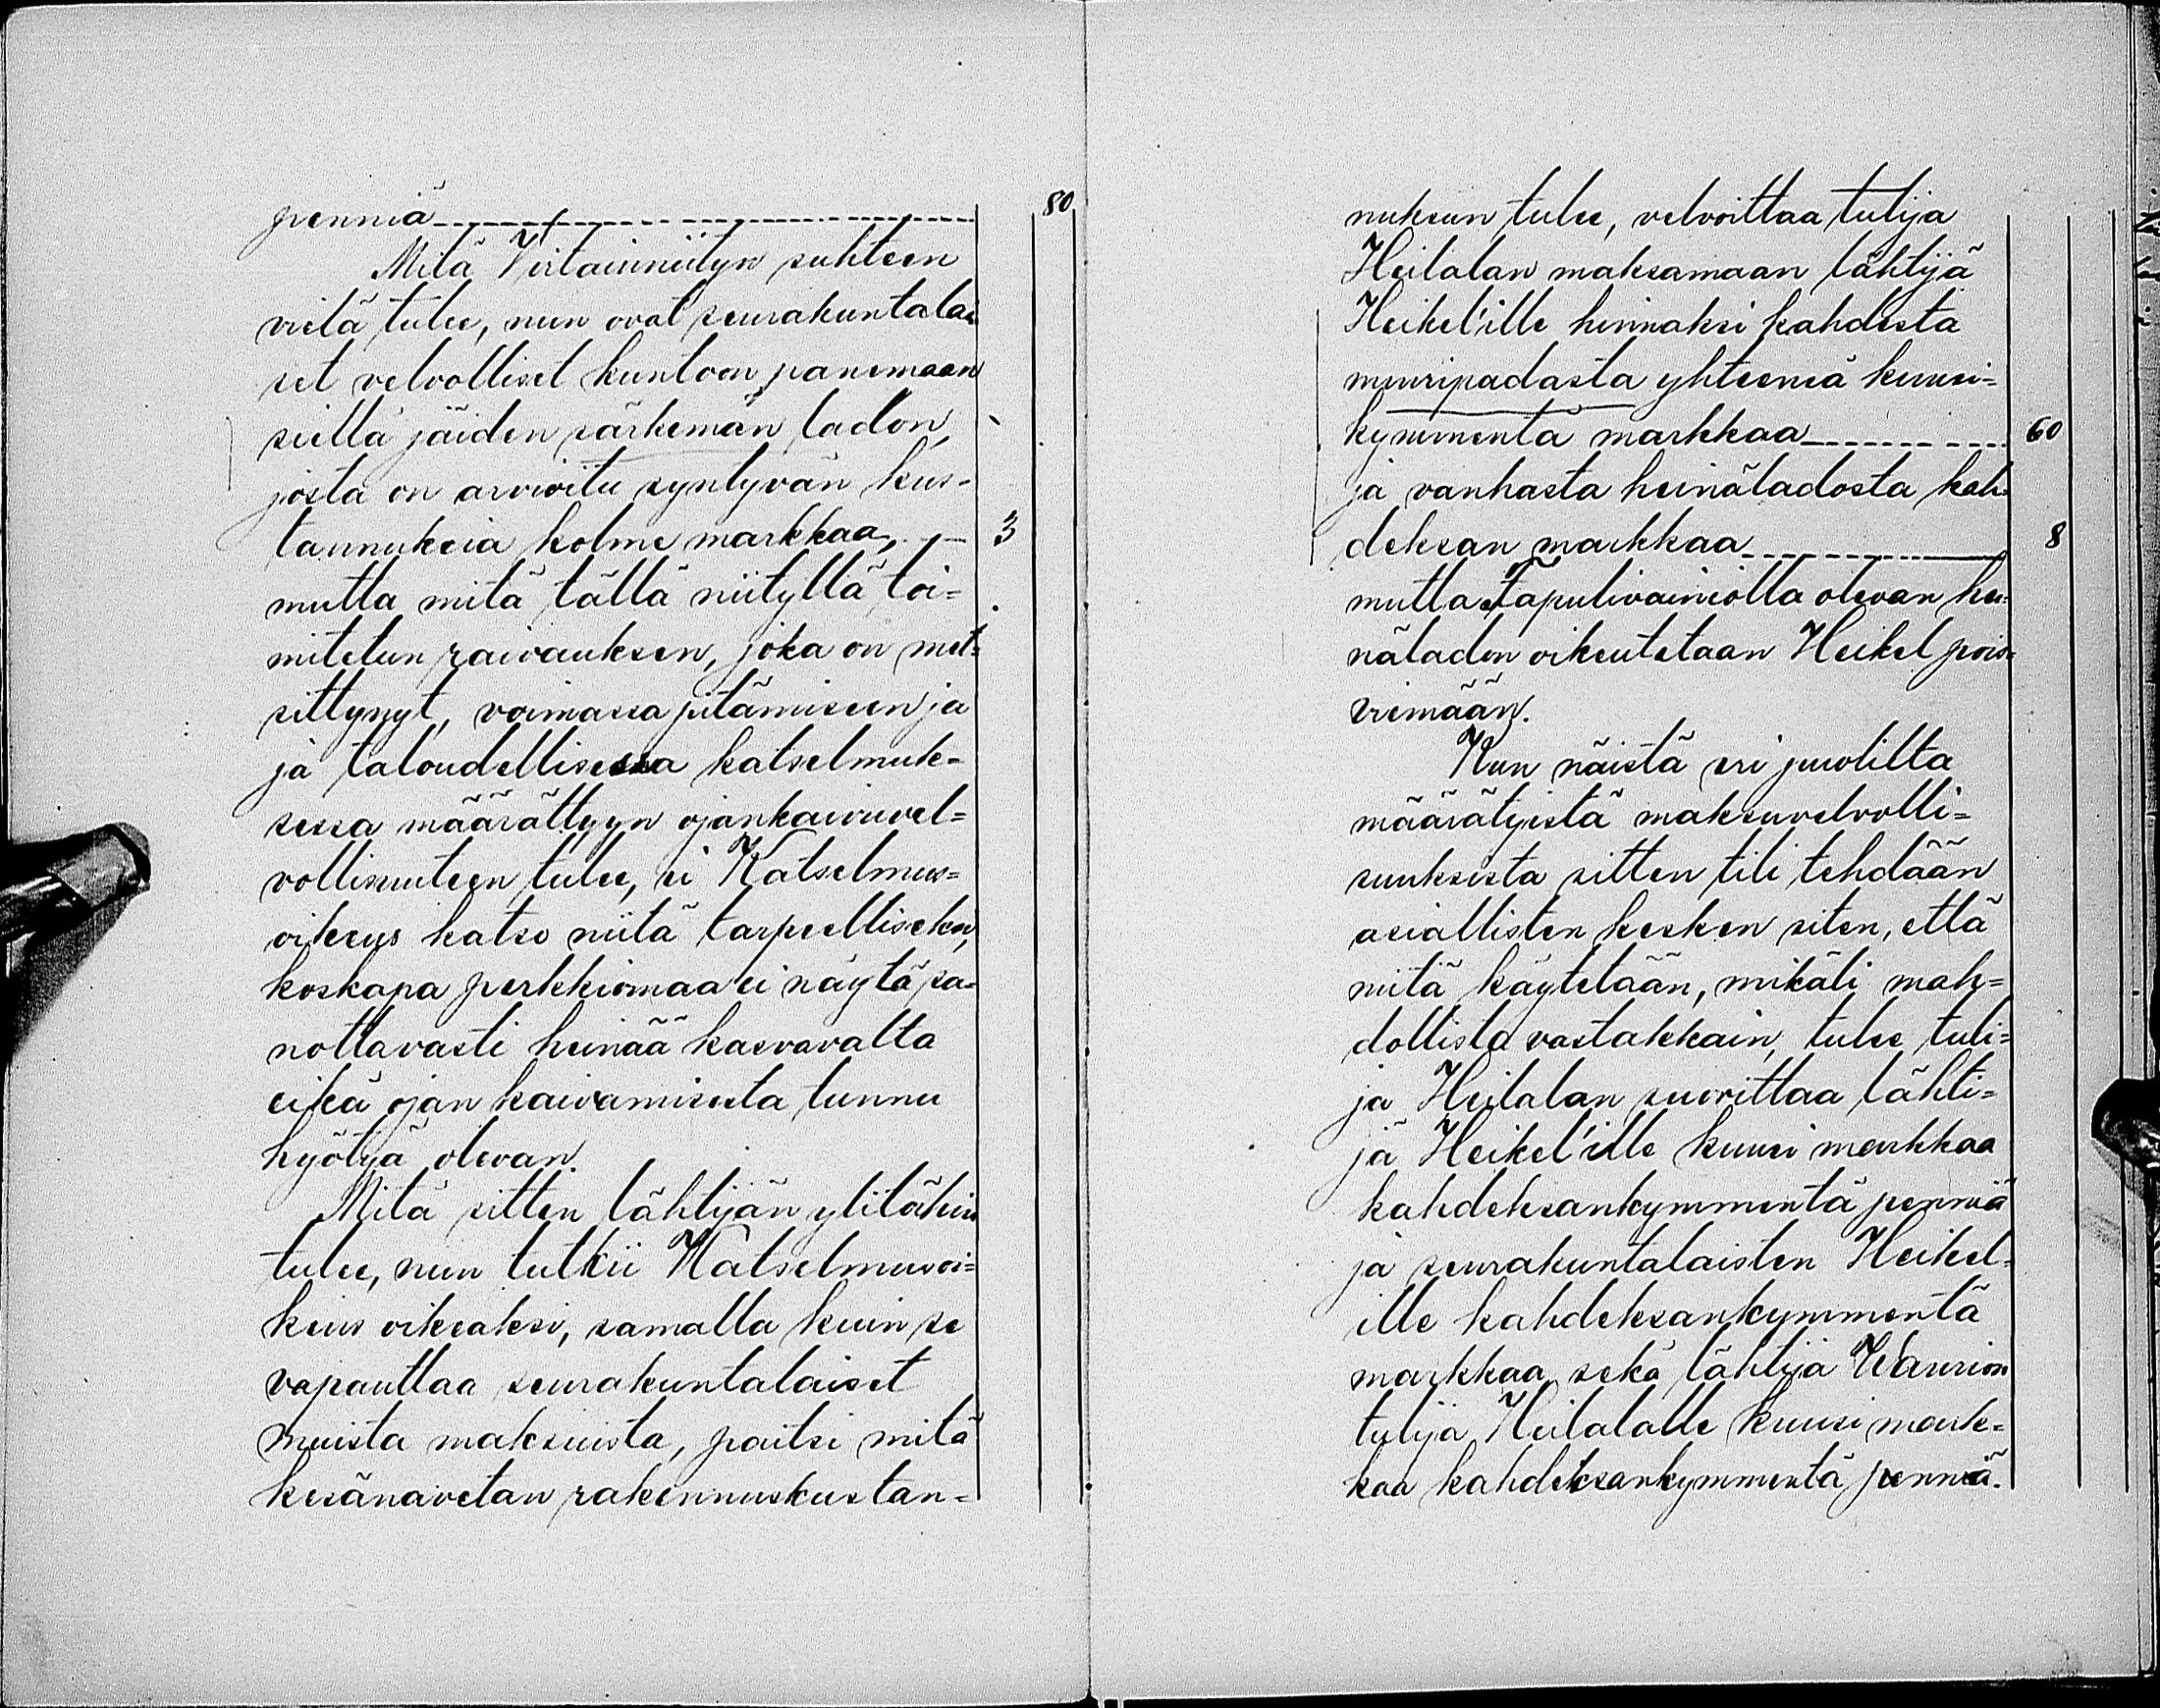 penniä 80
Mitä Virtainniityn suhteen
vielä tulee, niin ovat seurakuntalai
set velvolliset kuntoon panemaan
siellä jäiden särkemän ladon,
josta on arvioitu syntyvän kus-
tannuksia kolme markkaa, 3
mutta mitä tällä niityllä toi=
mitetun raivauksen, joka on met=
sittynyt, voimassa pitämiseen ja
ja taloudellisessa katselmuk=
sessa määrättyyn ojankaivuvel=
vollisuuteen tulee, ei Katselmus=
oikeus katso niitä tarpeelliseksi,
koskapa perkkiomaa ei näytä sa=
nottavasti heinää kasvavalta
eikä ojan kaivamisesta tunnu
hyötyä olevan.
Mitä sitten lähtijän ylitöihin
tulee, niin tutkii Katselmusoi=
keus oikeaksi, samalla kuin se
vapauttaa seurakuntalaiset
muista maksuista, paitsi mitä
kesänavetan rakennuskustan=
nuksiin tulee, velvoittaa tulija
Heilalan maksamaan lähtijä
Heikel'ille hinnaksi kahdesta
muuripadasta yhteensä kuusi=
kymmentä markkaa 60
ja vanhasta heinäladosta kah=
deksan markkaa 8
mutta Tapulivainiolla olevan hei=
näladon oikeutetaan Heikel pois=
viemään.
Kun näistä eri puolilta
määrätyistä maksuvelvolli=
suuksista sitten tili tehdään
asiallisten kesken siten, että
niitä käytetään, mikäli mah=
dollista vastakkain, tulee tuli=
ja Heilalan suorittaa lähti=
jä Heikel'ille kuusi markkaa
kahdeksankymmentä penniä
ja seurakuntalaisten Heikel=
ille kahdeksankymmentä
markkaa sekä lähtijä Waurion
tulija Heilalalle kuusi mark=
kaa kahdeksankymmentä penniä.